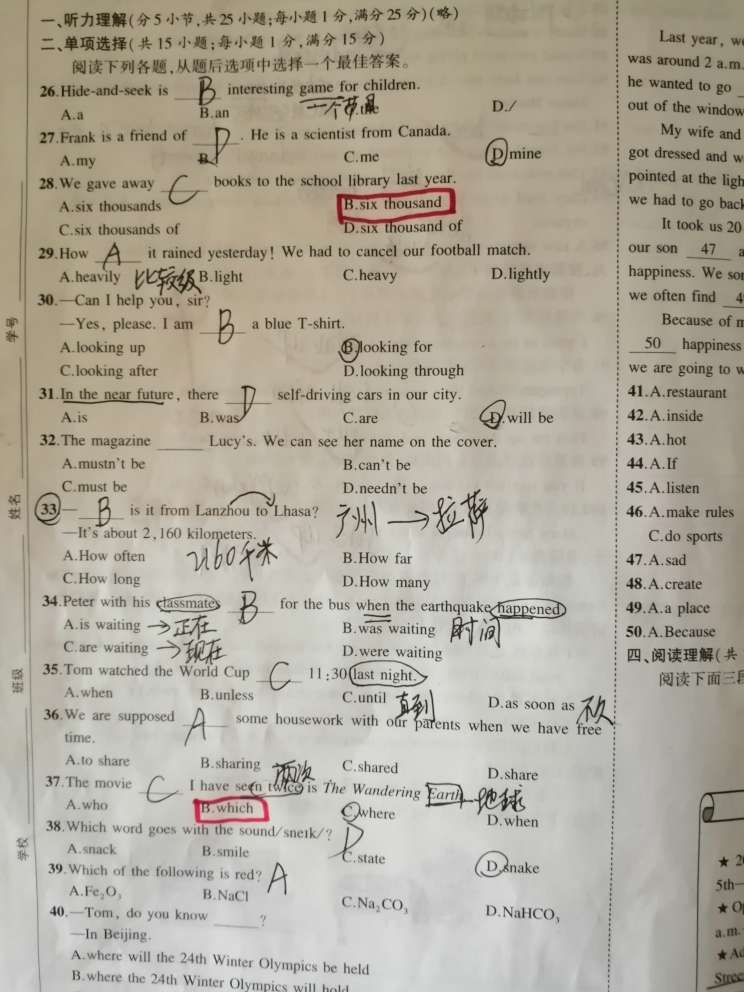 一、听力理解(分5小节,共25小题;每小题1分,满分25分)(略)
二、单项选择(共15小题;每小题1分,满分15分)
阅读下列各题,从题后选项中选择一个最佳答案。
26.Hide-and-seek is B interesting game for children.
A.a B.an 一个 D./
27.Frank is a friend of D . He is a scientist from Canada.
A.my B. C.me D.mine
28.We gave away C books to the school library last year.
A.six thousands B.six thousand
C.six thousands of D.six thousand of
29.How A it rained yesterday! We had to cancel our football match.
A.heavily 比较级 B.light C.heavy D.lightly
30.—Can I help you, sir?
—Yes, please. I am B a blue T-shirt.
A.looking up B.looking for
C.looking after D.looking through
31.In the near future, there D self-driving cars in our city.
A.is B.was C.are D.will be
32.The magazine ______ Lucy's. We can see her name on the cover.
A.mustn't be B.can't be
C.must be D.needn't be
33.— B is it from Lanzhou to Lhasa? 广州→拉萨
—It's about 2,160 kilometers.
A.How often 2160千米 B.How far
C.How long D.How many
34.Peter with his classmates B for the bus when the earthquake happened
A.is waiting →正在 B.was waiting 时间
C.are waiting →现在 D.were waiting
35.Tom watched the World Cup C 11:30 last night.
A.when B.unless C.until 直到 D.as soon as
36.We are supposed A some housework with our parents when we have free
time.
A.to share B.sharing C.shared D.share
两次
37.The movie C I have seen twice is The Wandering Earth 地球
A.who B.which C.where D.when
38.Which word goes with the sound/sneɪk/? D
A.snack B.smile C.state D.snake
39.Which of the following is red? A
A.Fe₂O₃ B.NaCl C.Na₂CO₃ D.NaHCO₃
40.—Tom, do you know ______?
—In Beijing.
A.where will the 24th Winter Olympics be held
B.where the 24th Winter Olympics will hold
学号
姓名
班级
学校
Last year, we
was around 2 a.m.
he wanted to go
out of the window
My wife and
got dressed and w
pointed at the ligh
we had to go back
It took us 20
our son 47 a
happiness. We so
we often find 4
Because of m
50 happiness
we are going to w
41.A.restaurant
42.A.inside
43.A.hot
44.A.If
45.A.listen
46.A.make rules
C.do sports
47.A.sad
48.A.create
49.A.a place
50.A.Because
四、阅读理解(共
阅读下面三段
★ 2
5th—
★ O
a.m.
★ Ad
Stree